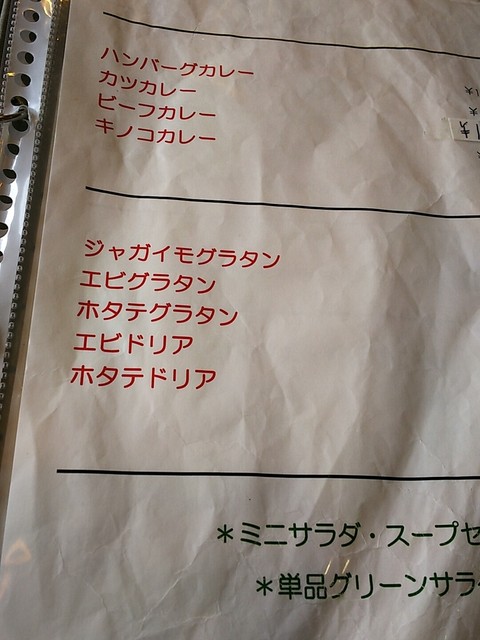 ハンバーグカレー
カツカレー
ビーフカレー
キノコカレー
ジャガイモグラタン
エビグラタン
ホタテグラタン
エビドリア
ホタテドリア
＊ミニサラダ・スープセ
＊単品グリーンサラ